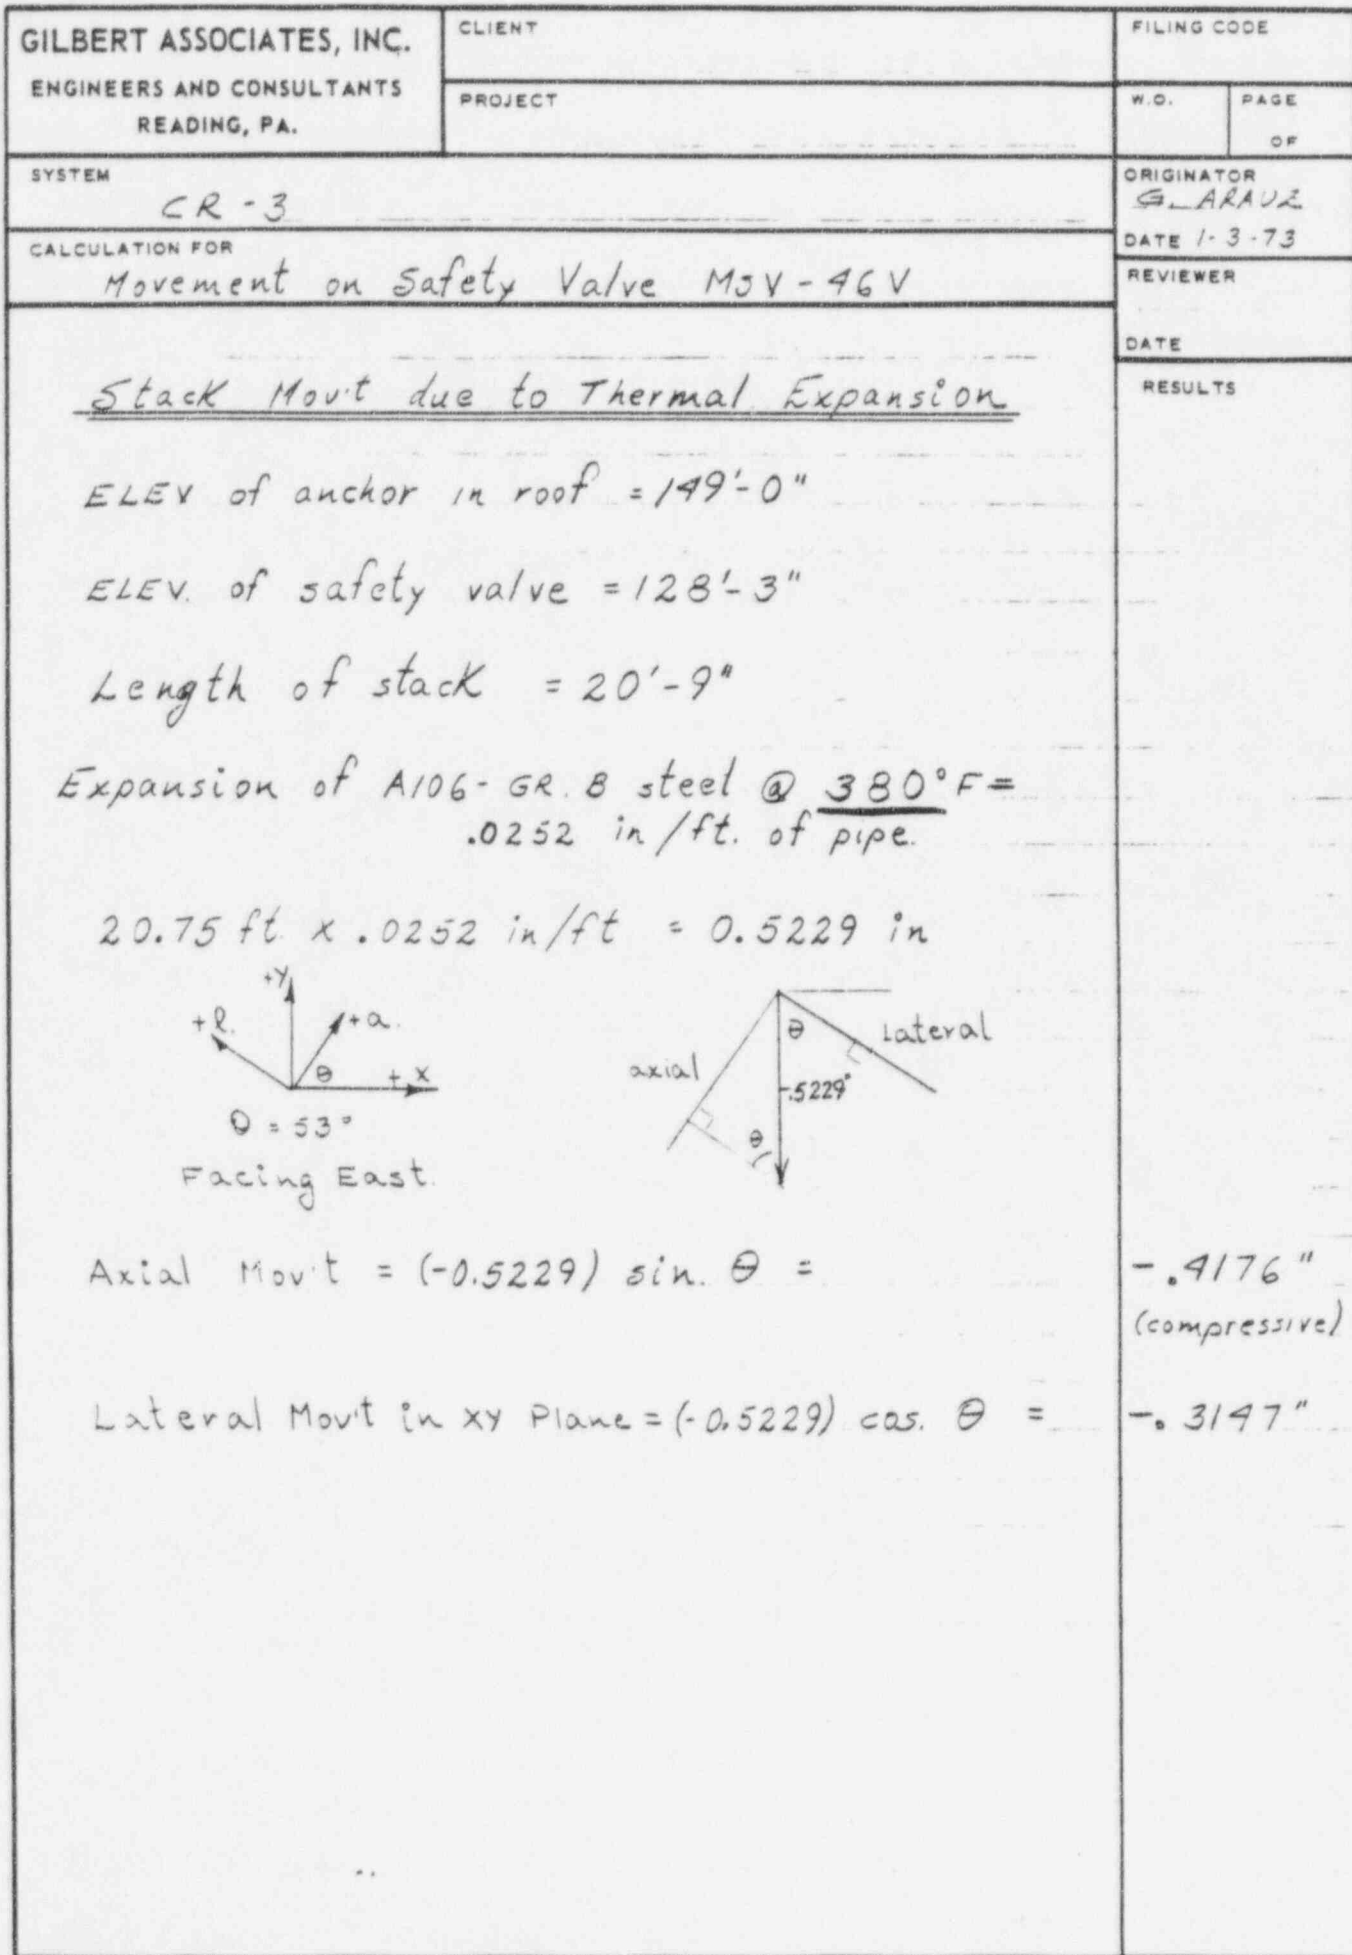 GILBERT ASSOCIATES, INC.
ENGINEERS AND CONSULTANTS
READING, PA.
CLIENT
PROJECT
FILING CODE
W.O.
PAGE
OF
SYSTEM
CR-3
ORIGINATOR
G. ARAUZ
DATE 1-3-73
CALCULATION FOR
Movement on Safety Valve MSV-46V
REVIEWER
DATE
RESULTS
Stack Mov't due to Thermal Expansion
ELEV of anchor in roof = 149'-0"
ELEV. of safety valve = 128'-3"
Length of stack = 20'-9"
Expansion of A106-GR. B steel @ 380°F =
.0252 in/ft. of pipe.
20.75 ft x .0252 in/ft = 0.5229 in
+Y
+l.
+a.
θ
+ X
θ = 53°
Facing East.
θ
Lateral
axial
-.5229"
θ
Axial Mov't = (-0.5229) sin. θ =
-.4176"
(compressive)
Lateral Mov't in XY Plane = (-0.5229) cos. θ =
-.3147"